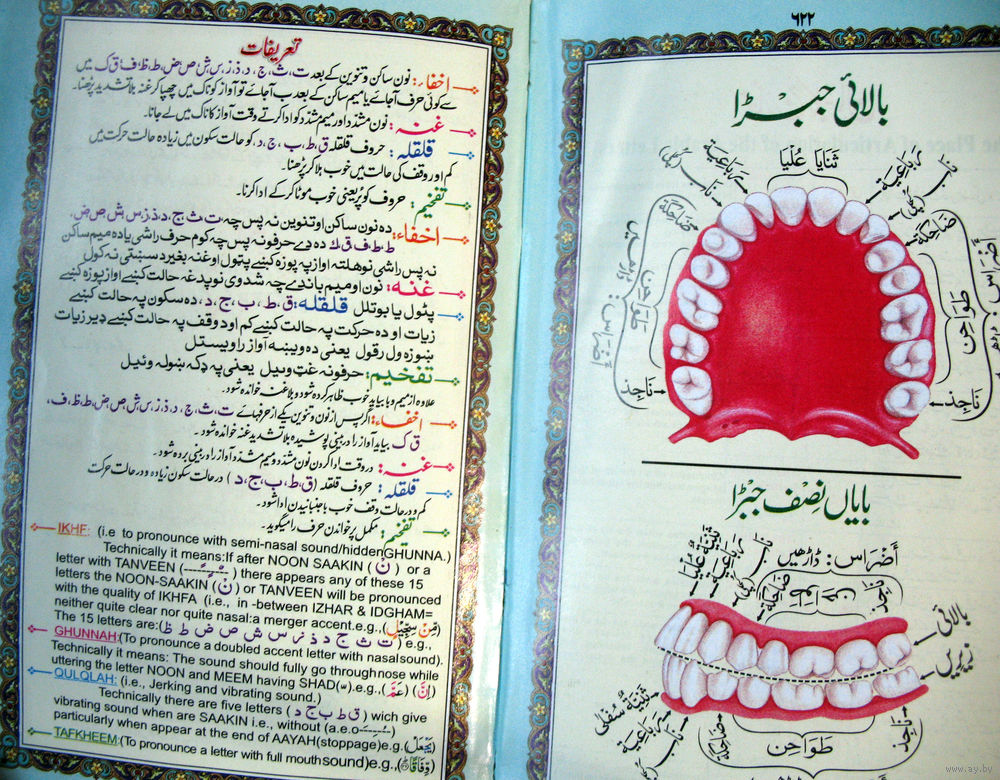 تعریفات
اخفاء: نون ساکن و تنوین کے بعد ت، ث، ج، د، ذ، ز، س، ش، ص، ض، ط، ظ، ف، ق، ک میں
سے کوئی حرف آجائے یا میم ساکن کے بعد ب آجائے تو آواز کو ناک میں چھپا کر غنہ بلا تشدید پڑھنا۔
غنہ: نون مشدد اور میم مشدد کو ادا کرتے وقت آواز کا ناک میں لے جانا۔
قلقلہ: حروف قلقلہ ق، ط، ب، ج، د، کو حالت سکون میں زیادہ حالت حرکت میں
کم اور وقف کی حالت میں خوب ہلا کر پڑھنا۔
تفخیم: حروف کو پُر یعنی موٹا کر کے ادا کرنا۔
اخفاء: ده نون ساکن او تنوین نہ پس چہ ت ث ج، د، ذ، ز، س، ش، ص، ض،
ط، ظ، ف، ق، ک ده دے حرفونہ پس چہ کوم حرف راشی یا ده میم ساکن
نہ پس راشی نو هلتہ اواز پہ پوزہ کښے پټول او غنہ بغیر د سختئی نہ کول
غنه: نون او میم باندے چہ شد وی نو پدغہ حالت کښے اواز پوزہ کښے
پټول یا بوتلل قلقله: ق، ط، ب، ج، د، ده سکون پہ حالت کښے
زیات او ده حرکت پہ حالت کښے کم او د وقف پہ حالت کښے ډیر زیات
ښوزہ ول رقول یعنی ده ویښہ آواز راویستل
تفخیم: حرفونہ غټ وئیل یعنی پہ ډکہ خولہ وئیل
علاوه از میم و با بیاید خوب ظاهر کرده شود و بلا غنہ خوانده شود۔
اخفاء: اگر پس از نون و تنوین یکے از حرفہائے ت، ث، ج، د، ذ، ز، س، ش، ص، ض، ط، ظ، ف،
ق ک بیاید آواز را در بینی پوشیده بلا تشدید غنہ خوانده شود۔
غنہ: در وقت ادا کردن نون مشدد و میم مشدد آواز را در بینی برده شود۔
قلقلہ: حروف قلقلہ (ق، ط، ب، ج، د) در حالت سکون زیاده و در حالت حرکت
کم و در حالت وقف خوب با جنبانیدن ادا شود۔
تفخیم: مکمل پر خواندن حرف را میگوید۔
IKHF: (i.e to pronounce with semi-nasal sound/hidden GHUNNA.)
Technically it means: If after NOON SAAKIN (نْ) or a
letter with TANVEEN (ـًـٍـٌ) there appears any of these 15
letters the NOON-SAAKIN (نْ) or TANVEEN will be pronounced
with the quality of IKHFA (i.e., in -between IZHAR & IDGHAM=
neither quite clear nor quite nasal:a merger accent.e.g.,(مِنْ سِجِّيْلٍ)
The 15 letters are:(ت ث ج د ذ ز س ش ص ض ط ظ) e.g.,
GHUNNAH:(To pronounce a doubled accent letter with nasalsound).
Technically it means: The sound should fully go throughnose while
uttering the letter NOON and MEEM having SHAD(ّ).e.g.,(عَمَّ) (اِنَّ)
QULQLAH: (i.e., Jerking and vibrating sound.)
Technically there are five letters (ق ط ب ج د) wich give
vibrating sound when are SAAKIN i.e., without (a.e.o-ـَـِـُ)
particularly when appear at the end of AAYAH(stoppage)e.g.(يَجْعَلْ)
TAFKHEEM:(To pronounce a letter with full mouthsound)e.g.,(وِفَاقًا)
٦٢٢
بالائی جبڑا
ثَنَایَا عُلْیَا
رَبَاعِیَۃ
رَبَاعِیَۃ
نَاب
نَاب
ضَاحِکَۃ
ضَاحِکَۃ
طَوَاحِن
طَوَاحِن
اَضْرَاس: داڑھیں
اَضْرَاس
نَاجِذ
نَاجِذ
بایاں نِصْف جبڑا
اَضْرَاس: داڑھیں
ثَنِیَّۂ عُلْیَا
رَبَاعِیَۃ
نَاب
ضَاحِکَۃ
طَوَاحِن
نَاجِذ
بالائی
زیریں
ثَنِیَّۂ سُفْلٰی
رَبَاعِیَۃ
نَاب
ضَاحِکَۃ
طَوَاحِن
نَاجِذ
www.ay.by